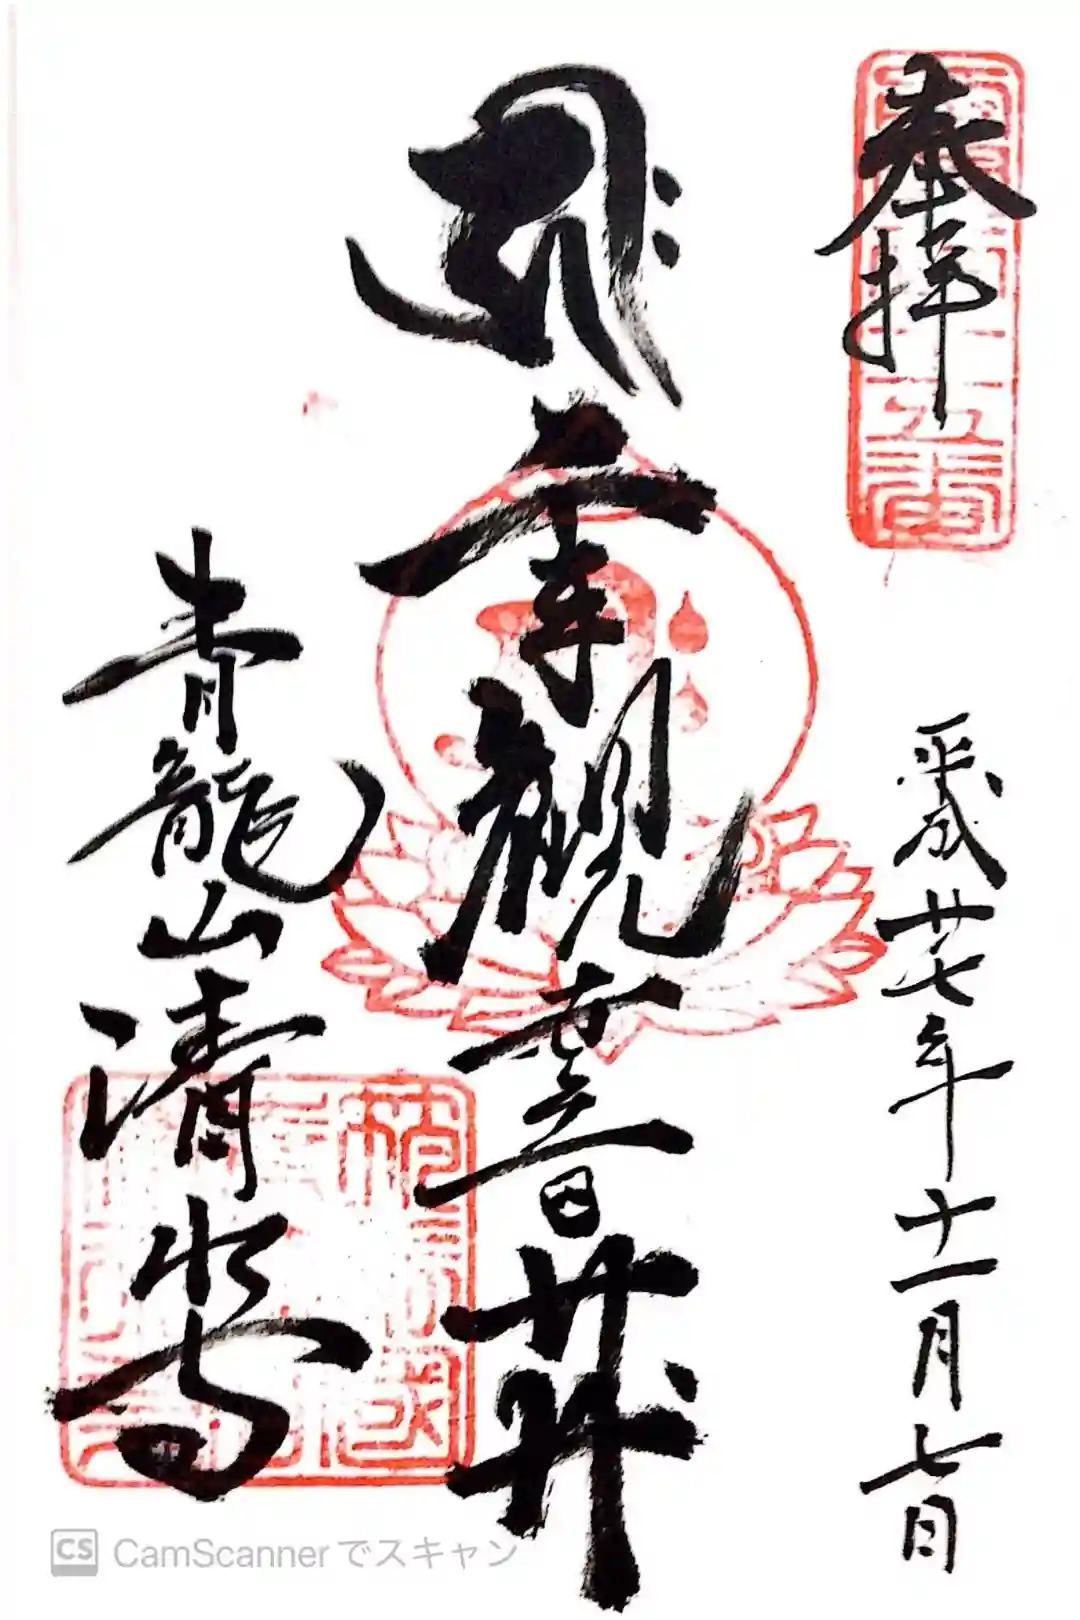 奉拝
平成廿七年十一月七日
千手観世音𦬇
青龍山清水寺
CS CamScannerでスキャン